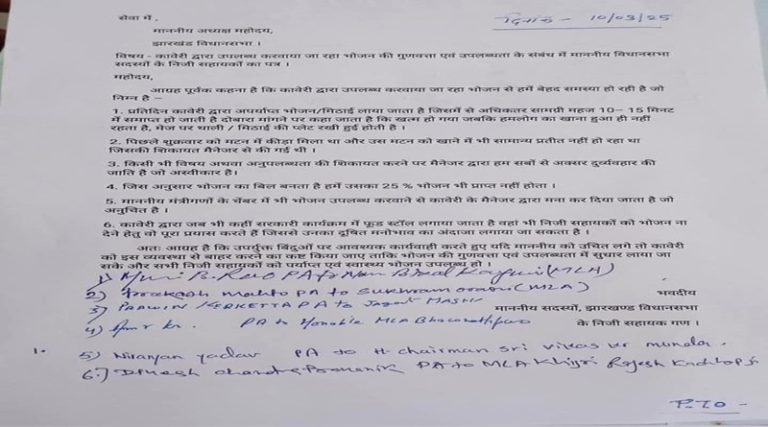 सेवा में ,
दिनांक - 10/03/25
माननीय अध्यक्ष महोदय,
झारखंड विधानसभा ।
विषय - कावेरी द्वारा उपलब्ध करवाया जा रहा भोजन की गुणवत्ता एवं उपलब्धता के संबंध में माननीय विधानसभा
सदस्यों के निजी सहायकों का पत्र ।
महोदय,
आग्रह पूर्वक कहना है कि कावेरी द्वारा उपलब्ध करवाया जा रहा भोजन से हमें बेहद समस्या हो रही है जो
निम्न है –
1. प्रतिदिन कावेरी द्वारा अपर्याप्त भोजन/मिठाई लाया जाता है जिसमें से अधिकतर सामग्री महज 10– 15 मिनट
में समाप्त हो जाती है दोबारा मांगने पर कहा जाता है कि खत्म हो गया जबकि हमलोग का खाना हुआ ही नहीं
रहता है, मेज पर थाली / मिठाई की प्लेट रखी हुई होती है ।
2. पिछले शुक्रवार को मटन में कीड़ा मिला था और उस मटन को खाने में भी सामान्य प्रतीत नहीं हो रहा था
जिसकी शिकायत मैनेजर से की गई थी ।
3. किसी भी विषय अथवा अनुपलब्धता की शिकायत करने पर मैनेजर द्वारा हम सबों से अक्सर दुर्व्यवहार की
जाति है जो अस्वीकार है।
4. जिस अनुसार भोजन का बिल बनता है हमें उसका 25 % भोजन भी प्राप्त नहीं होता ।
5. माननीय मंत्रीगणों के चेंबर में भी भोजन उपलब्ध करवाने से कावेरी के मैनेजर द्वारा मना कर दिया जाता है जो
अनुचित है ।
6. कावेरी द्वारा जब भी कहीं सरकारी कार्यक्रम में फूड स्टॉल लगाया जाता है वहां भी निजी सहायकों को भोजन ना
देने हेतु वो पूरा प्रयास करते हैं जिससे उनका दूषित मनोभाव का अंदाजा लगाया जा सकता है ।
अतः आग्रह है कि उपर्युक्त बिंदुओं पर आवश्यक कार्यवाही करते हुए यदि माननीय को उचित लगे तो कावेरी
को इस व्यवस्था से बाहर करने का कष्ट किया जाए ताकि भोजन की गुणवत्ता एवं उपलब्धता में सुधार लाया जा
सके और सभी निजी सहायकों को पर्याप्त एवं स्वास्थ्य भोजन उपलब्ध हो ।
1) PA to (MLA)
2) Prakash Mahto PA to Sukhram Oraon (MLA)
भवदीय
3) PRAWIN KERKETTA PA to Jagat MASHI
माननीय सदस्यों, झारखण्ड विधानसभा
4) kr. PA to Honable MLA
के निजी सहायक गण ।
1.
5) Niranjan yadav PA to H. chairman Sri vikas kr munda.
6.) Dinesh chandra Pramanik PA to MLA Khijri Rajesh Kachhap ji
P.T.O -